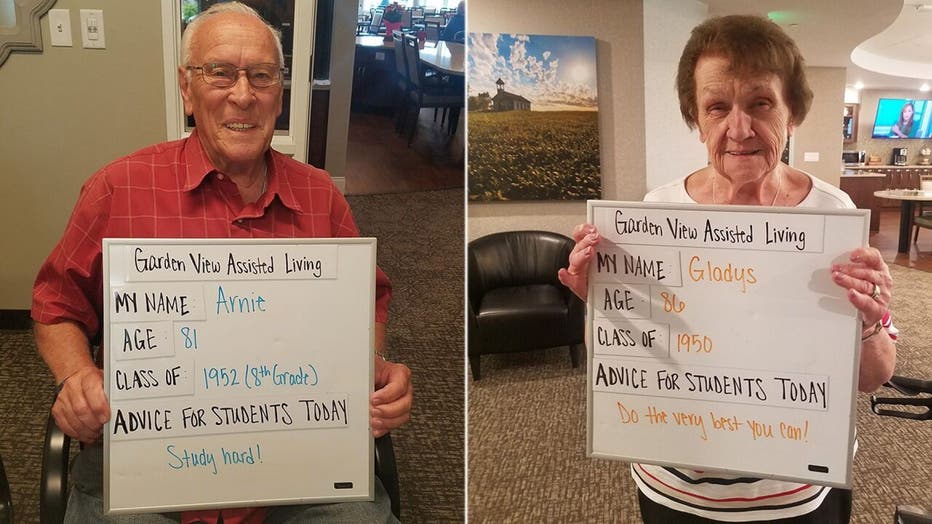 Garden View Assisted Living
MY NAME: Arnie
AGE: 81
CLASS OF: 1952 (8th Grade)
ADVICE FOR STUDENTS TODAY
Study hard!
Garden View Assisted Living
MY NAME: Gladys
AGE: 86
CLASS OF: 1950
ADVICE FOR STUDENTS TODAY
Do the very best you can!